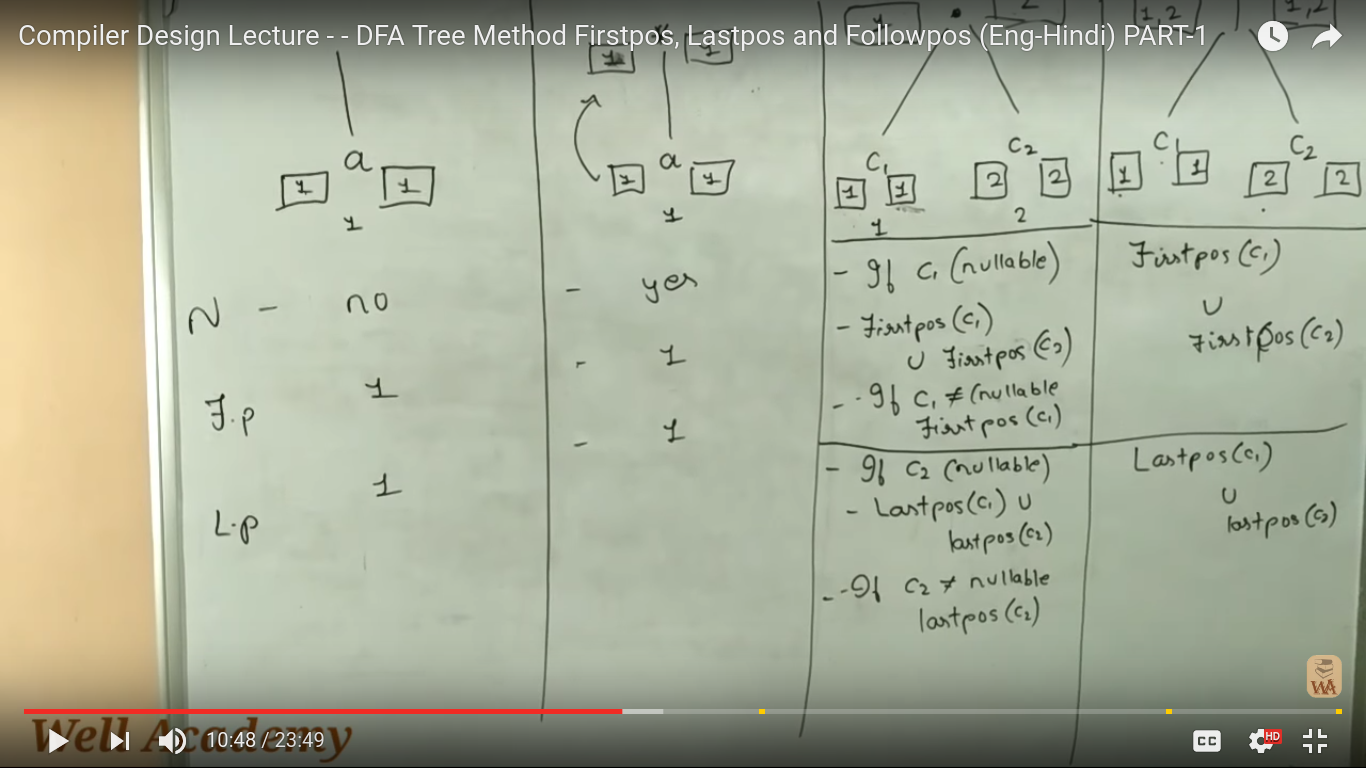 Compiler Design Lecture - - DFA Tree Method Firstpos, Lastpos and Followpos (Eng-Hindi) PART-1
1 * 1
1 . 2
1,2 | 1,2
a
1 1
1
a
1 1
1
C1
1 1
1
C2
2 2
2
C1
1 1
C2
2 2
N - no
F.p 1
L.p 1
- yes
- 1
- 1
- If C1 (nullable)
- Firstpos(C1)
U Firstpos(C2)
- - If C1 ≠ (nullable
Firstpos(C1)
- If C2 (nullable)
- Lastpos(C1) U
lastpos(C2)
- - If C2 ≠ nullable
lastpos(C2)
Firstpos(C1)
U
Firstpos(C2)
Lastpos(C1)
U
lastpos(C2)
WA
Well Academy
10:48 / 23:49
CC
HD